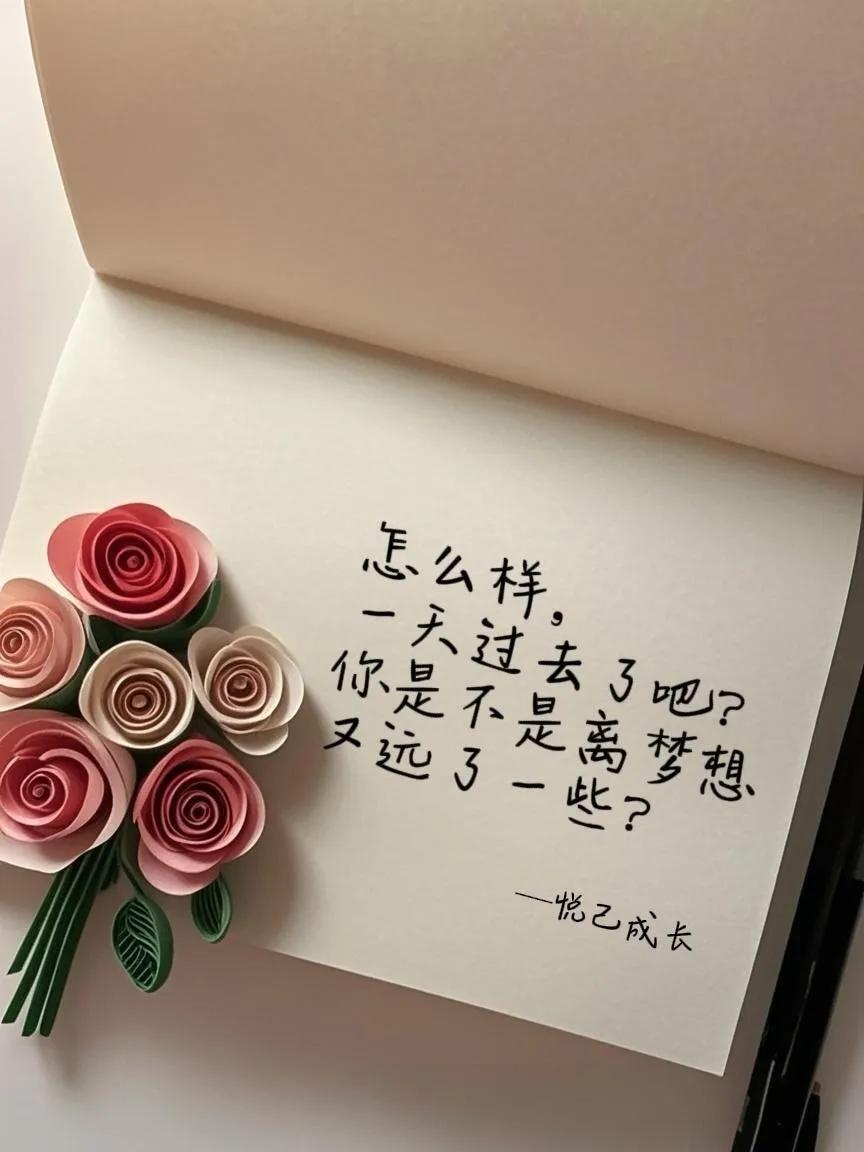 怎么样，
一天过去了吧？
你是不是离梦想
又远了一些？
—悦己成长